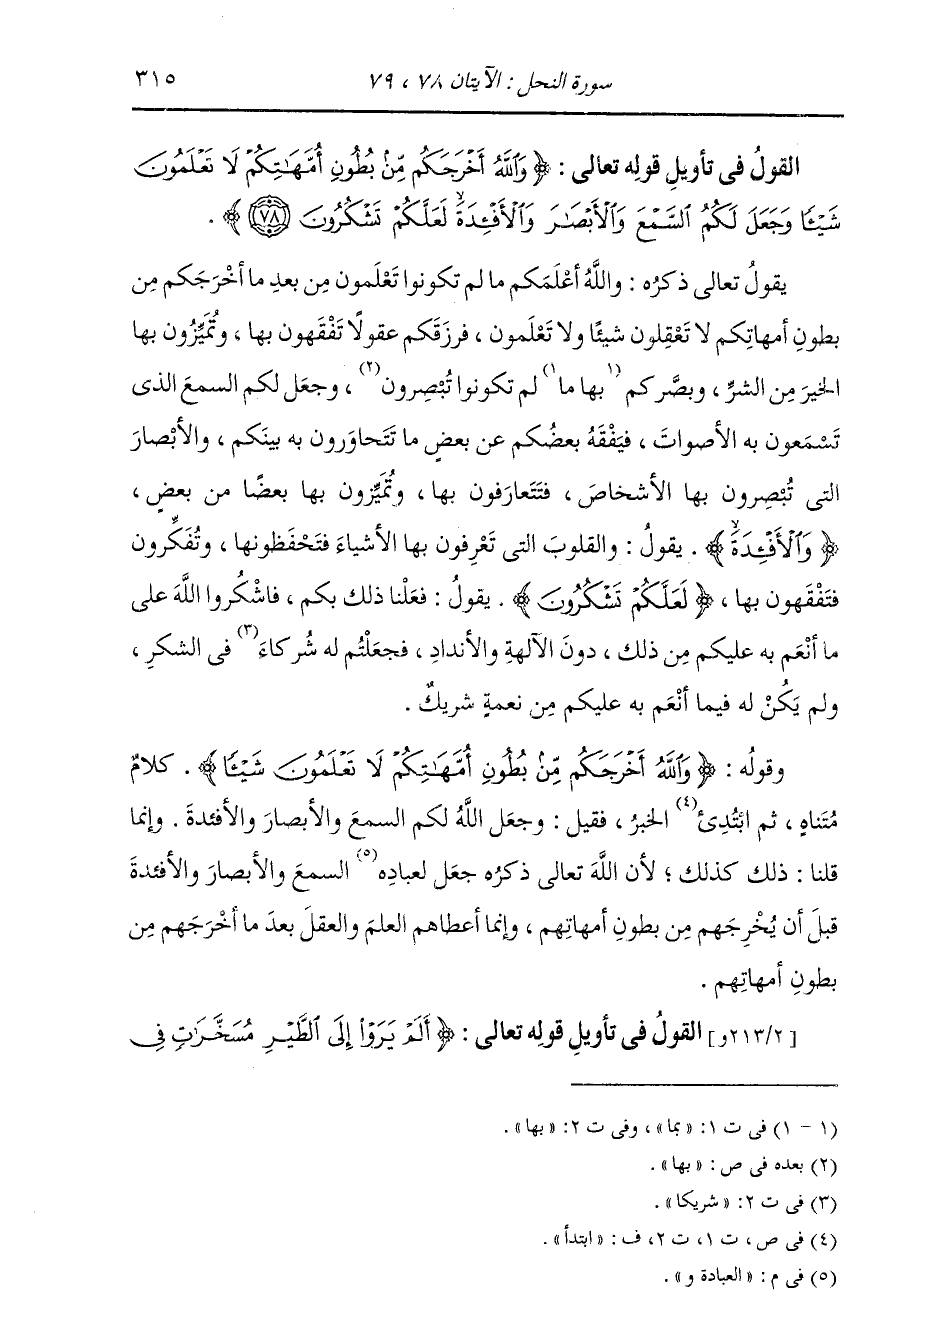 سورة النحل : الآيتان ٧٨ ، ٧٩ ٣١٥
القولُ فى تأويلِ قولِه تعالى : ﴿ وَٱللَّهُ أَخْرَجَكُم مِّنۢ بُطُونِ أُمَّهَٰتِكُمْ لَا تَعْلَمُونَ
شَيْـًٔا وَجَعَلَ لَكُمُ ٱلسَّمْعَ وَٱلْأَبْصَٰرَ وَٱلْأَفْـِٔدَةَ ۙ لَعَلَّكُمْ تَشْكُرُونَ ٧٨ ﴾ .
يقولُ تعالى ذكرُه : واللَّهُ أعْلَمَكم ما لم تكونوا تَعْلَمون مِن بعدِ ما أخْرَجَكم مِن
بطونِ أمهاتِكم لا تَعْقِلون شيئًا ولا تَعْلَمون ، فرزَقَكم عقولًا تَفْقَهون بها ، وتُمَيِّزُون بها
الخيرَ مِن الشرِّ ، وبصَّركم (١بها ما١) لم تكونوا تُبْصِرون(٢) ، وجعَل لكم السمعَ الذى
تَسْمَعون به الأصواتَ ، فيَفْقَهُ بعضُكم عن بعضٍ ما تَتَحاوَرون به بينَكم ، والأبْصارَ
التى تُبْصِرون بها الأشخاصَ ، فتَتَعارَفون بها ، وتُمَيِّزون بها بعضًا من بعضٍ ،
﴿ وَٱلْأَفْـِٔدَةَ ۙ ﴾ . يقولُ : والقلوبَ التى تَعْرِفون بها الأشياءَ فتَحْفَظونها ، وتُفَكِّرون
فتَفْقَهون بها ، ﴿ لَعَلَّكُمْ تَشْكُرُونَ ﴾ . يقولُ : فعَلْنا ذلك بكم ، فاشْكُروا اللَّهَ على
ما أنْعَم به عليكم مِن ذلك ، دونَ الآلهةِ والأندادِ ، فجعَلْتُم له شُركاءَ(٣) فى الشكرِ ،
ولم يَكُنْ له فيما أنْعَم به عليكم مِن نعمةٍ شريكٌ .
وقولُه : ﴿ وَٱللَّهُ أَخْرَجَكُم مِّنۢ بُطُونِ أُمَّهَٰتِكُمْ لَا تَعْلَمُونَ شَيْـًٔا ﴾ . كلامٌ
مُتَناهٍ ، ثم ابْتُدِئ(٤) الخبرُ ، فقيل : وجعَل اللَّهُ لكم السمعَ والأبصارَ والأفئدةَ . وإنما
قلنا : ذلك كذلك ؛ لأن اللَّهَ تعالى ذكرُه جعَل لعبادِه(٥) السمعَ والأبصارَ والأفئدةَ
قبلَ أن يُخْرِجَهم مِن بطونِ أمهاتِهم ، وإنما أعطاهم العلمَ والعقلَ بعدَ ما أخْرَجَهم مِن
بطونِ أمهاتِهم .
[٢١٣/٢و] القولُ فى تأويلِ قولِه تعالى : ﴿ أَلَمْ يَرَوْا۟ إِلَى ٱلطَّيْرِ مُسَخَّرَٰتٍ فِى
(١ - ١) فى ت ١: «بما» ، وفى ت ٢: «بها» .
(٢) بعده فى ص : «بها» .
(٣) فى ت ٢: «شريكا» .
(٤) فى ص ، ت ١، ت ٢، ف : «ابتدأ» .
(٥) فى م : «العبادة و» .